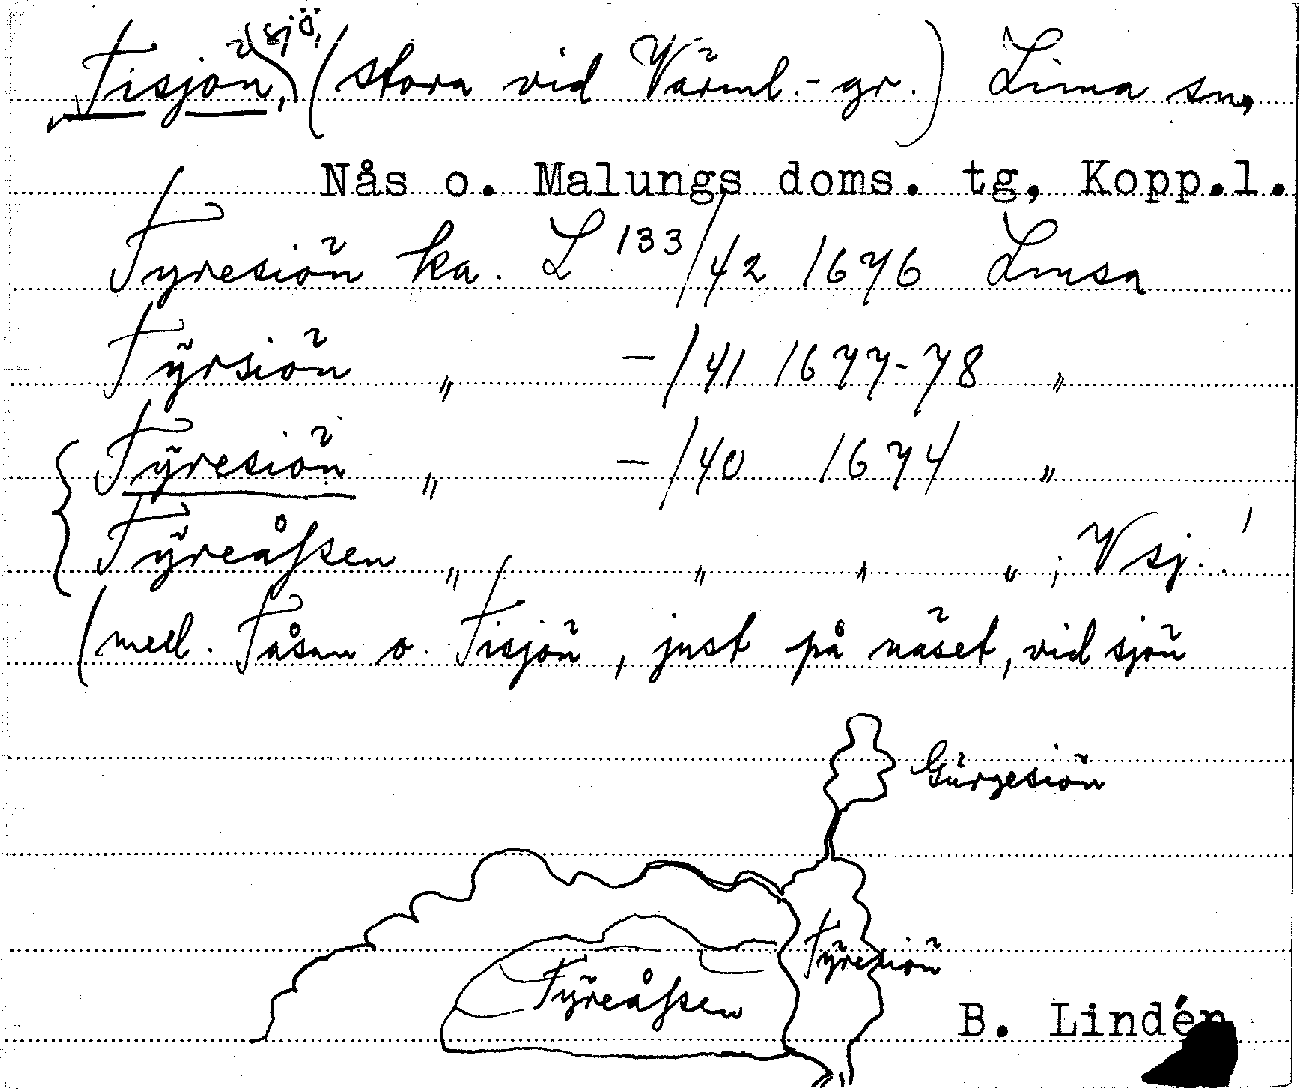 Tisjön, sjö, (stora vid Värml.-gr.) Lima sn,
Nås o. Malungs doms. tg, Kopp.l.
Tyresiön ka. L 133/42 1676 Limsa
Tÿrsiön „ —/41 1677-78 „
Tÿresiön „ —/40 1674 „
Tÿreåssen „ „ „ „ ; V sj.!
(mell. Tåsan o. Tisjön, just på näset, vid sjön
Gürgesiön
Tÿresiön
Tÿreåssen
B. Lindén